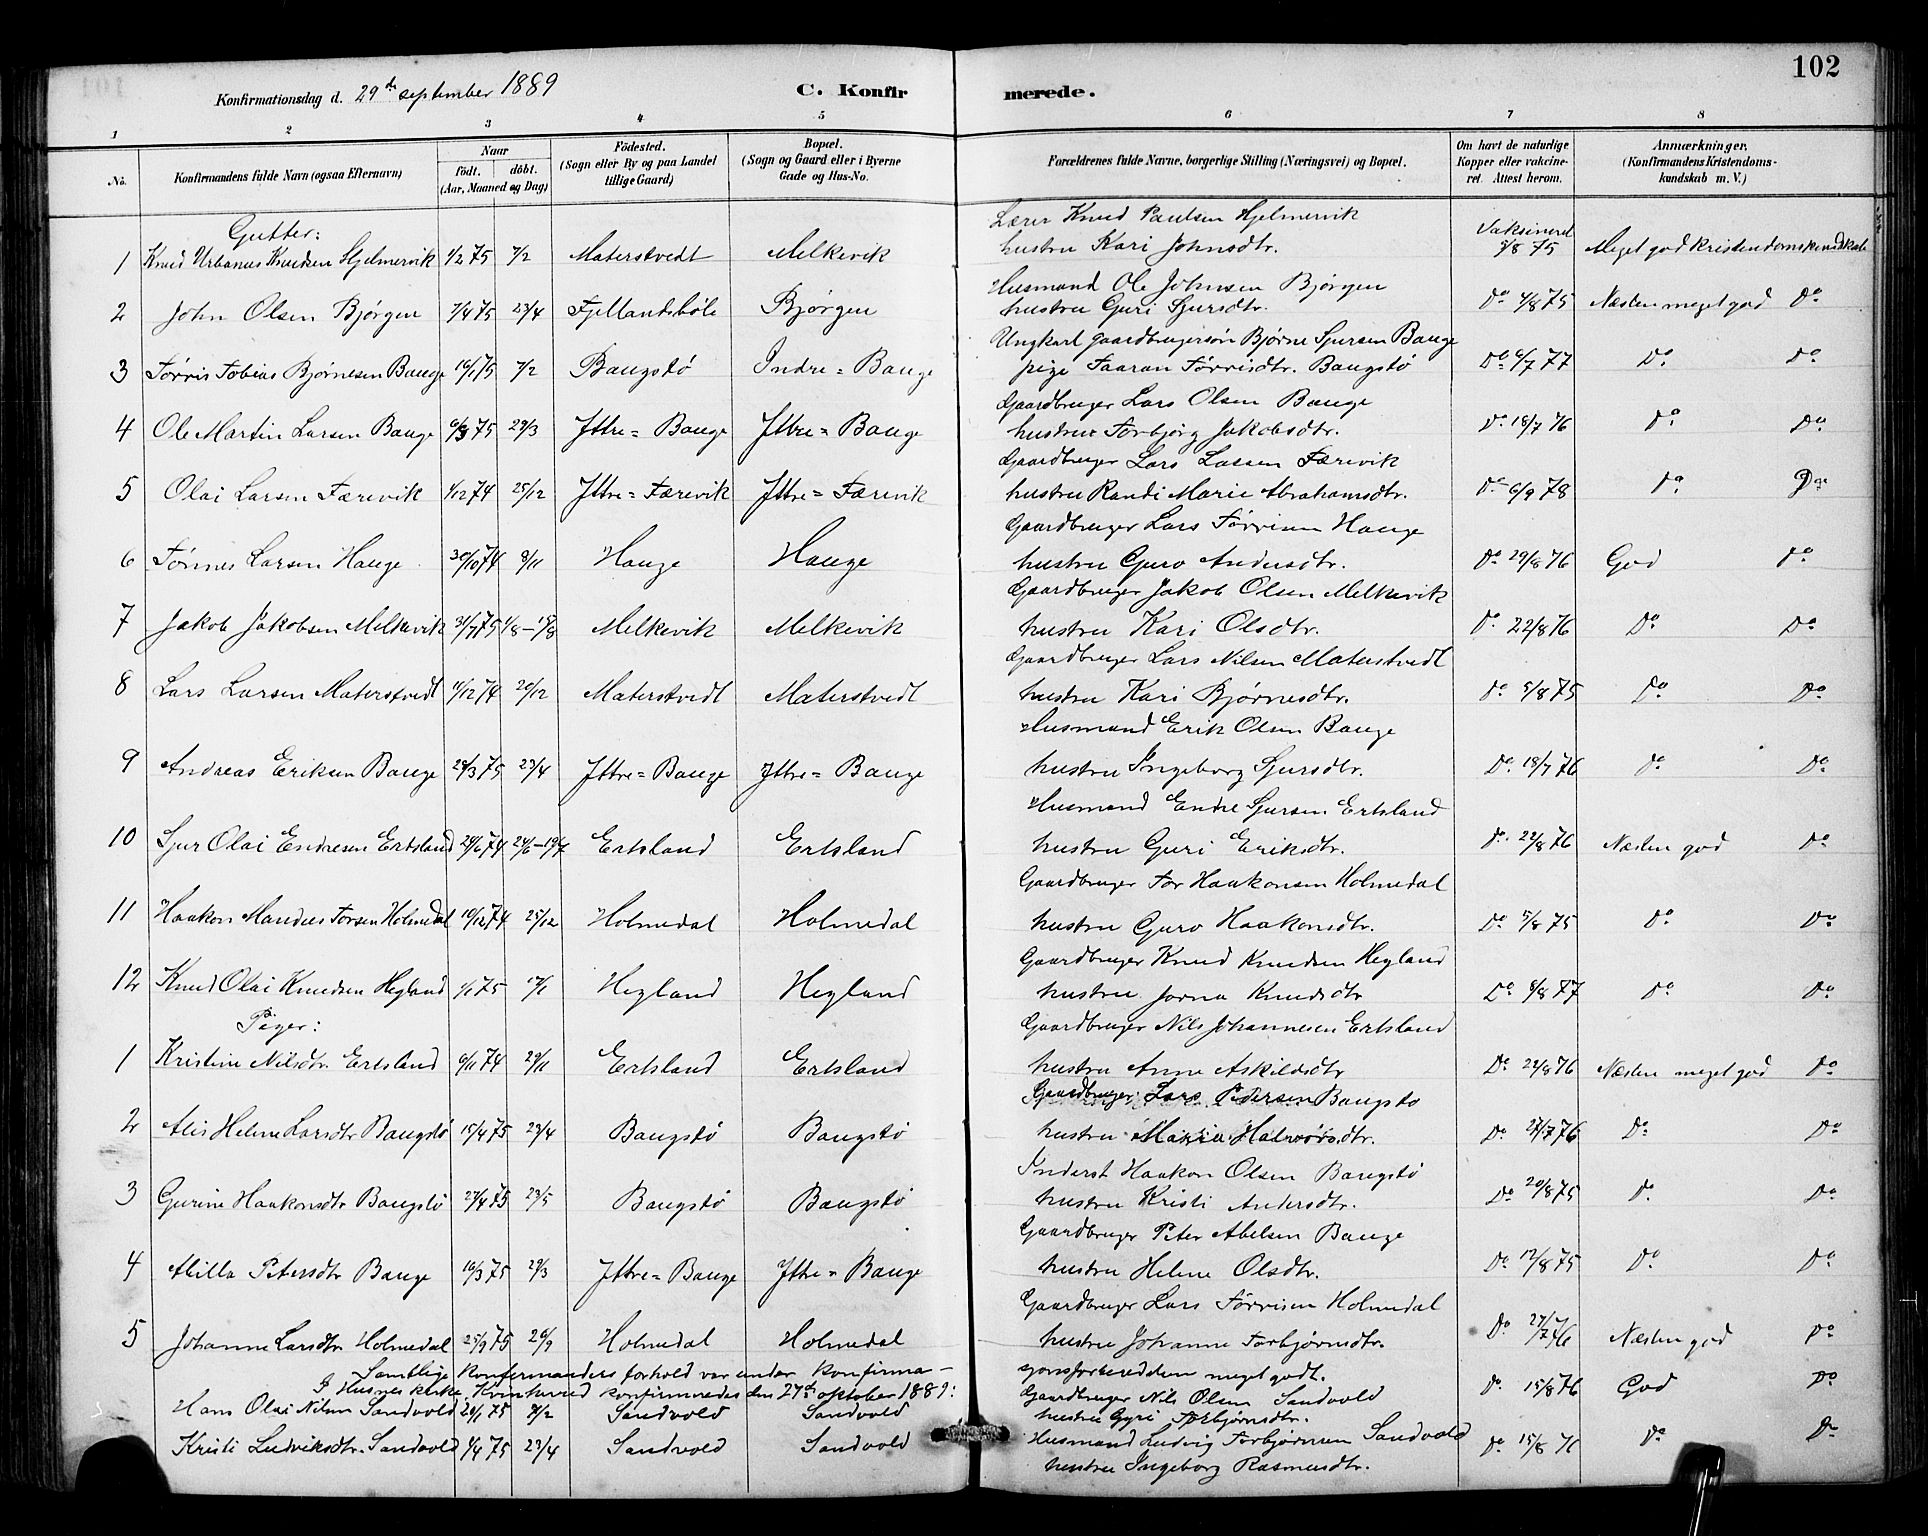 102
Konfirmationsdag d. 29de september 1889 C. Konfirmerede.
1 2 3 4 5 6 7 8
No. Konfirmandens fulde Navn (ogsaa Efternavn) Naar født. døbt. (Aar, Maaned og Dag) Födested. (Sogn eller By og paa Landet tillige Gaard) Bopæl. (Sogn og Gaard eller i Byerne Gade og Hus-No. Forældrenes fulde Navne, borgerlige Stilling (Næringsvei) og Bopæl. Om havt de naturlige Kopper eller vakcineret. Attest herom. Anmærkninger. (Konfirmandens Kristendomskundskab m. V.)
Gutter:
Lærer Knud Paulsen Hjelmervik
1 Knud Urbanus Knudsen Hjelmervik 1/2 75 7/2 Materstvedt Melkevik hustru Kari Johnsdtr. Vaksinerd 5/8 75 Meget god kristendomskundskab
Husmand Ole Johnsen Bjørgen
2 John Olsen Bjørgen 7/4 75 23/4 Fjellandsbøle Bjørgen hustru Guri Sjursdtr. Do 4/8 75 Næsten meget god Do
Ungkarl gaardbrugersøn Bjørne Sjursen Bauge
3 Tørris Tobias Bjørnesen Bauge 16/1 75 7/2 Baugstö Indre = Bauge pige Taaran Tørrisdtr. Baugstö Do 6/7 77 Do Do
Gaardbruger Lars Olsen Bauge
4 Ole Martin Larsen Bauge 6/3 75 29/3 Ittre = Bauge Ittre = Bauge hustru Torbjørg Jakobsdtr. Do 18/7 76 Do Do
Gaardbruger Lars Larsen Færevik
5 Olai Larsen Færevik 1/12 74 25/12 Ittre = Færevik Ittre = Færevik hustru Randi Marie Abrahamsdtr. Do 6/9 78 Do Do
Gaardbruger Lars Tørrisen Hauge
6 Tønnes Larsen Hauge 30/10 74 8/11 Hauge Hauge hustru Guro Andersdtr. Do 29/8 76 God Do
Gaardbruger Jakob Olsen Melkevik
7 Jakob Jakobsen Melkevik 31/7 75 1/8 – 15/8 Melkevik Melkevik hustru Kari Olsdtr. Do 22/8 76 Do Do
Gaardbruger Lars Nilsen Materstvedt
8 Lars Larsen Materstvedt 11/12 74 20/12 Materstvedt Materstvedt hustru Kari Bjørnesdtr. Do 5/8 75 Do Do
Husmand Erik Olsen Bauge
9 Andreas Eriksen Bauge 29/3 75 23/4 Ittre = Bauge Ittre = Bauge hustru Ingeborg Sjursdtr. Do 18/7 76 Do Do
Husmand Endre Sjursen Ertsland
10 Sjur Olai Endresen Ertsland 24/6 74 Ertsland Ertsland hustru Guri Eriksdtr. Do 22/8 76 Næsten god Do
Gaardbruger Tor Haakonsen Holmedal
11 Haakon Mandus Torsen Holmedal 10/12 74 25/12 Holmedal Holmedal hustru Guro Haakonsdtr. Do 5/8 75 Do Do
Gaardbruger Knud Knudsen Hegland
12 Knud Olai Knudsen Hegland 1/1 75 17/1 Hegland Hegland hustru Jorna Knudsdtr Do 8/8 77 Do Do
Piger:
Gaardbruger Nils Johannesen Ertsland
1 Kristine Nilsdtr. Ertsland 6/11 74 29/11 Ertsland Ertsland hustru Anne Askildsdtr Do 22/8 76 Næsten meget god Do
Gaardbruger Lars Pedersen Baugstø
2 Alis Helene Larsdtr Baugstö 15/4 75 23/4 Baugstö Baugstö hustru Maria Halvorsdtr. Do 27/7 76 Do Do
Inderst Haakon Olsen Baugstö
3 Gurine Haakonsdtr Baugstö 27/4 75 23/5 Baugstö Baugstö hustru Kristi Andersdtr. Do 20/8 75 Do Do
Gaardbruger Peter Abelsen Bauge
4 Milla Petersdtr Bauge 16/3 75 29/3 Ittre = Bauge Ittre = Bauge hustru Helene Olsdtr. Do 17/8 75 Do Do
Gaardbruger Lars Tørrisen Holmedal
5 Johanne Larsdtr Holmedal 25/9 75 26/9 Holmedal Holmedal hustru Johanne Torbjørnsdtr. Do 27/7 76 Næsten god Do
Samtlige konfirmanders forhold var under konfirma-
tionsforberedelsen meget godt.
I Husnes kirke, Kvinherred konfirmeredes den 27de oktober 1889:
Gaardbruger Nils Olsen Sandvold
Hans Olai Nilsen Sandvold 24/1 75 7/2 Sandvold Sandvold hustru Gyri Torbjørnsdtr. Do 15/8 76 God Do
Husmand Ludvig Torbjørnsen Sandvold
Kristi Ludviksdtr. Sandvold 4/4 75 23/4 Sandvold Sandvold hustru Ingeborg Rasmusdtr. Do 15/8 76 Do Do